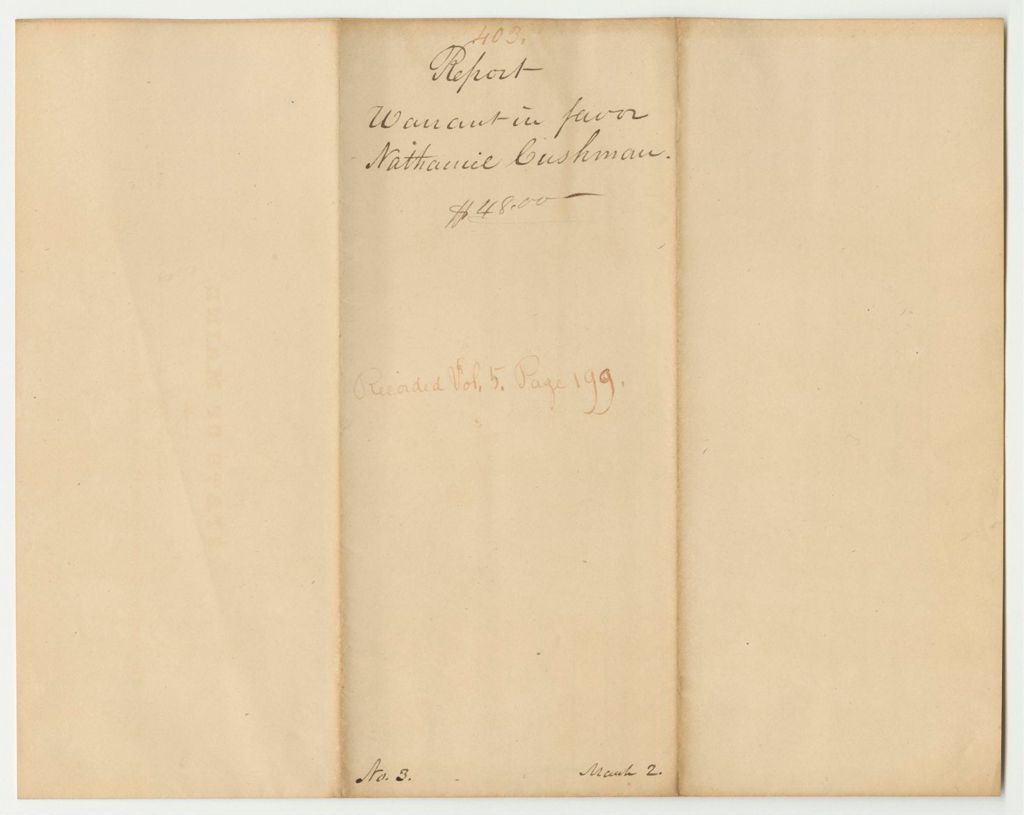 403.
Report
Warrant in favor
Nathaniel Cushman.
$48.00
Recorded Vol. 5. Page 199.
No. 3. March 2.
STATE OF MAINE